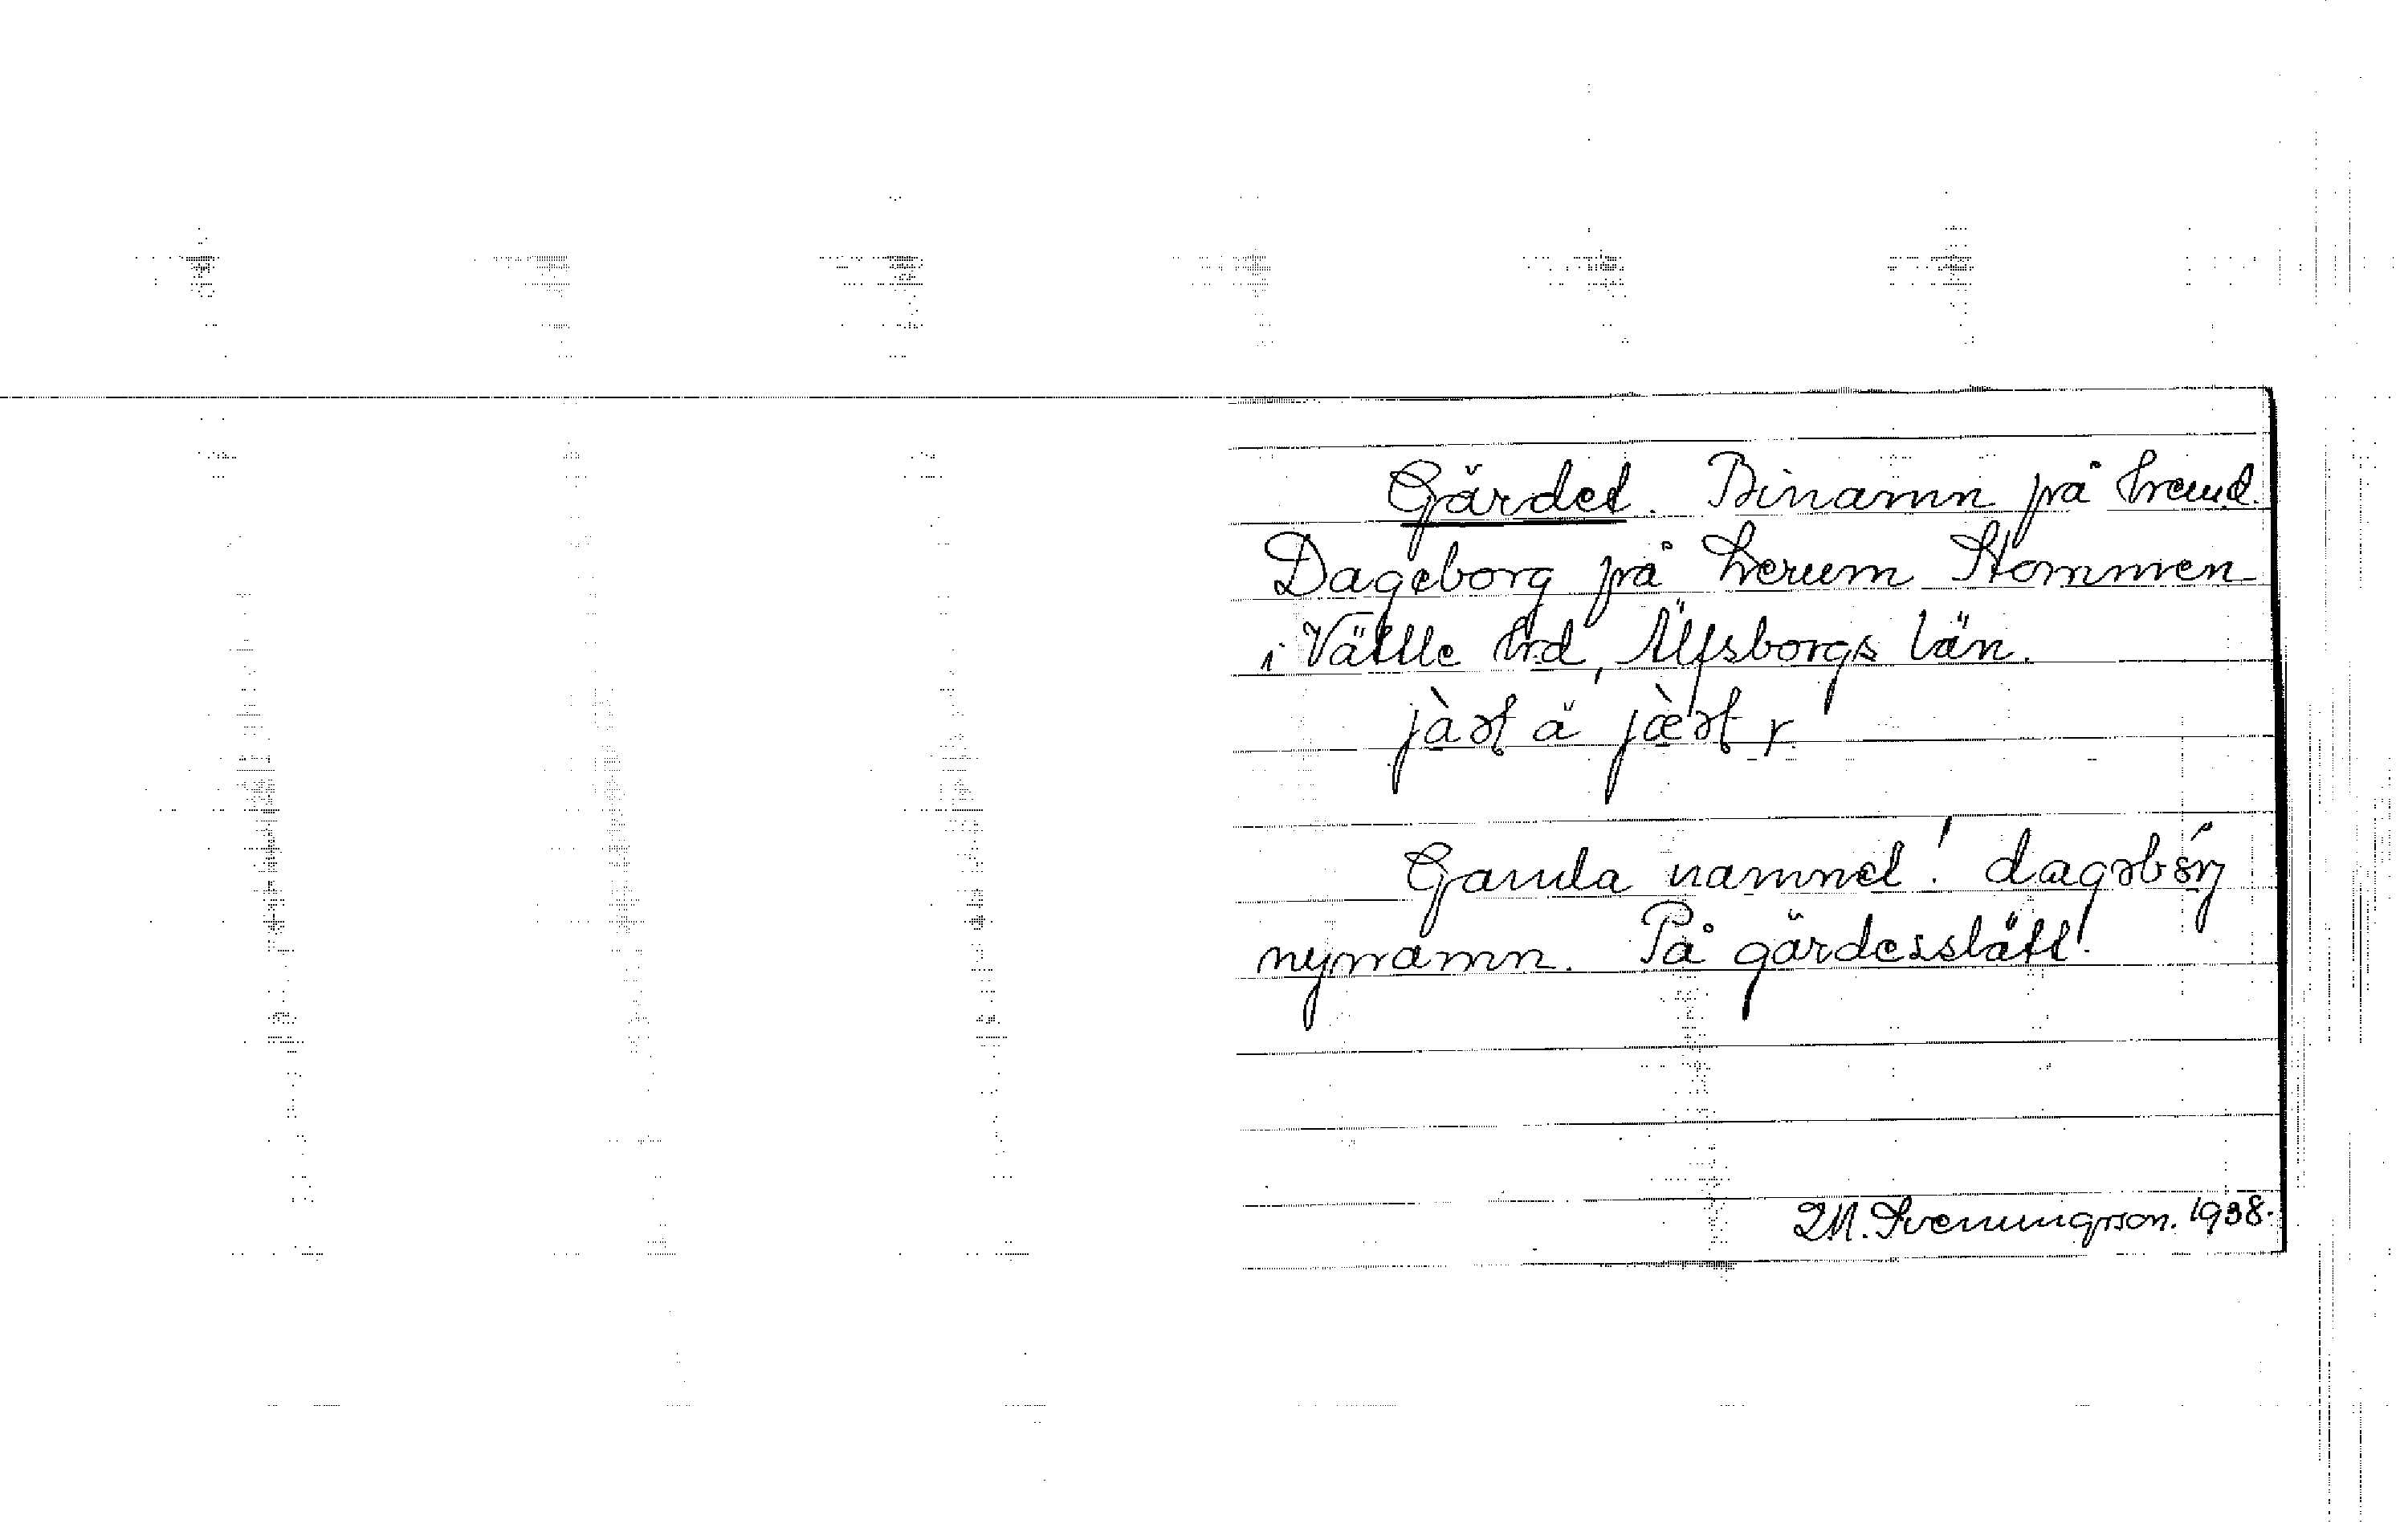 Gärdet. Binamn på hemd.
Dageborg på Lerum Stommen
i Vättle hrd, Älfsborgs län.
jàət ä jæ̀ət r.
Gamla namnet! dagəbór̡
nynamn. På gärdesslätt!
M. Svenungsson. 1938.